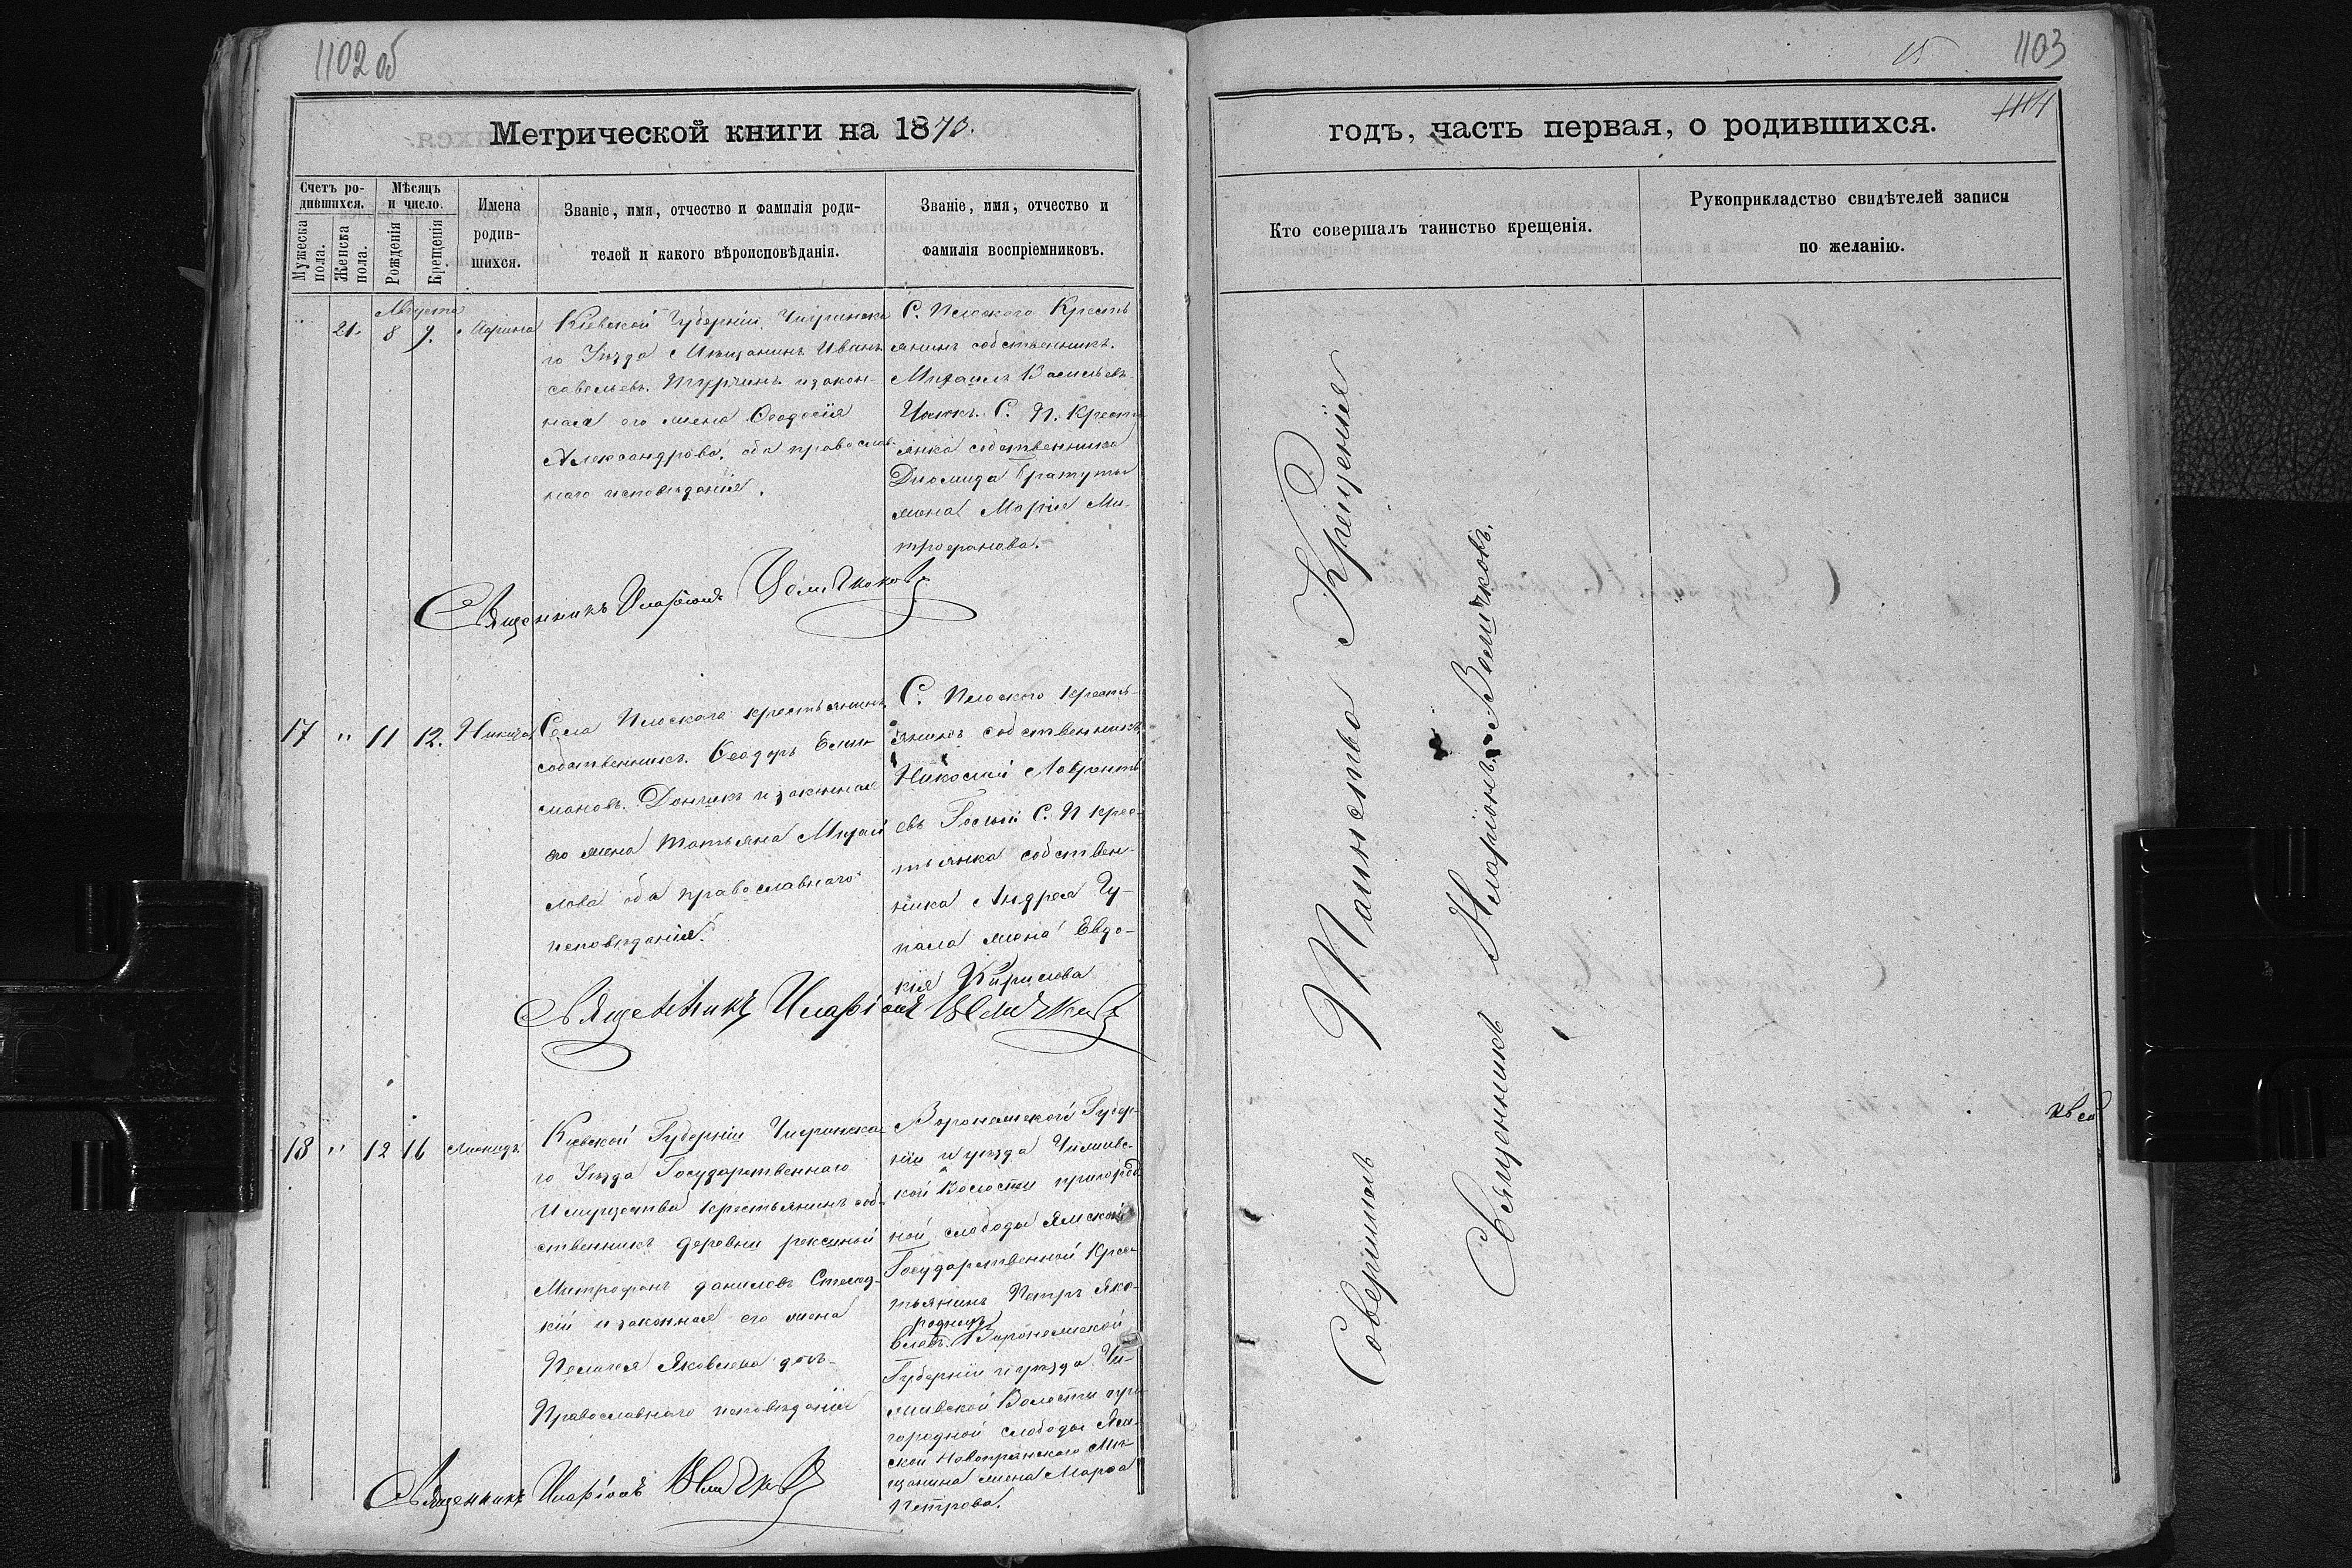 1102 об
Метрической книги на 1870.
Счетъ ро-
дившихся.
Мужеска
пола.
Женска
пола.
Мѣсяцъ
и число.
Рожденія
Крещенія
Имена
родив-
шихся.
Званіе, имя, отчество и фамилія роди-
телей и какого вѣроисповѣданія.
Званіе, имя, отчество и
фамилія воспріемниковъ.
Августа
21. 8 9.
Кіевской Губерніи, Чигринска
го Уѣзда Мѣщанинъ Иванъ
Савельевъ. Турчинъ и закон-
ная его жена Ѳеодосія
Александрова. оба православ-
наго исповѣданія.
С. Плоского Кресть
янинъ собственникъ.
Михаилъ Васильевъ
С. П. Крестъ
янка собственника
Диомида Братуты
жена Марія Ми-
трофанова.
Священникъ Иларіонъ Величковъ
17 " 11 12. Никита
Села Плоскаго крестьянинъ
собственникъ. Ѳеодоръ Емель
яновъ. Дончикъ и законная
его жена Татьяна Михай
лова оба православнаго
исповѣданія.
С. Плоского кресть-
янинъ собственникъ
Николай Лаврентъ
евъ Голый С. П крес-
тьянка собствен-
ника Андрея Чу-
пала жена Евдо-
кія Кирилова
Священникъ Иларіонъ Величковъ
18 " 12 16 Леонидъ
Кіевской Губерніи Чигринска
го Уѣзда Государственнаго
Имущества крестьянинъ соб-
ственникъ деревни
Митрофанъ Даниловъ
кій и законная его жена
Пелагея Яковлева
Православнаго исповѣданія
Воронежской Губер-
ніи и уѣзда Чижовс-
кой Волости пригород
ной слободы Ямской
Государственной Крес
тьянинъ Петръ Яко-
влевъ. Воронежской
Губерніи и уѣзда Чи-
жовской Волости при
городной слободы Ям-
ской Мѣ-
щанина жена Марфа
Петрова.
Священникъ Иларіонъ Величковъ
15
1103
1114
годъ, часть первая, о родившихся.
Кто совершалъ таинство крещенія.
Рукоприкладство свидѣтелей записи
по желанію.
Совершилъ Таинство Крещенія
Священникъ Иларіонъ Величковъ.